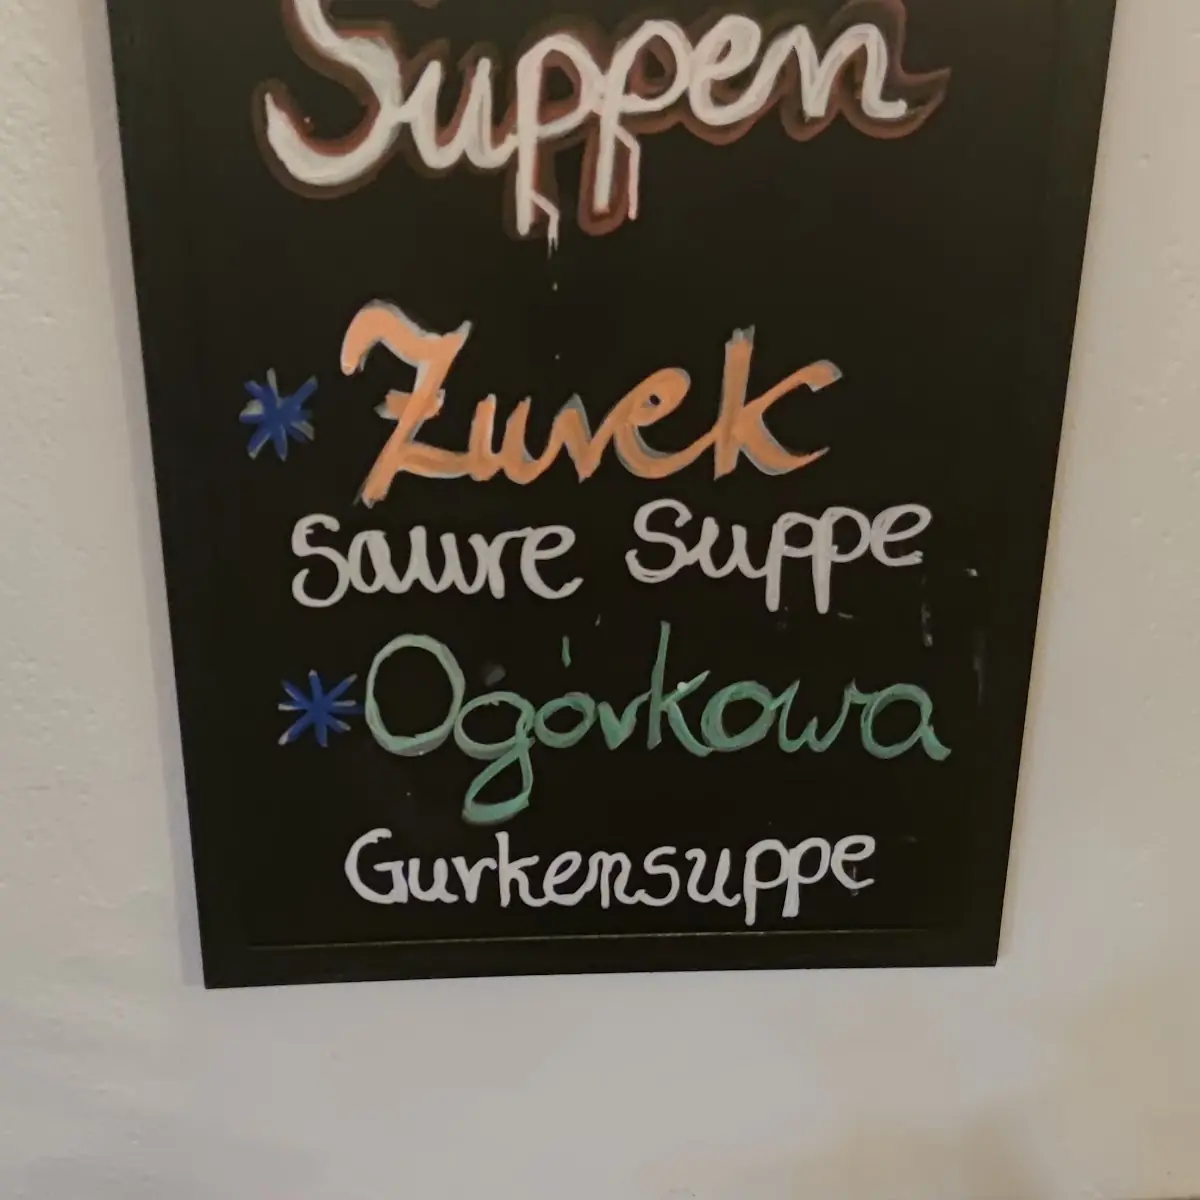 Suppen
* Zurek
Saure Suppe
* Ogórkowa
Gurkensuppe